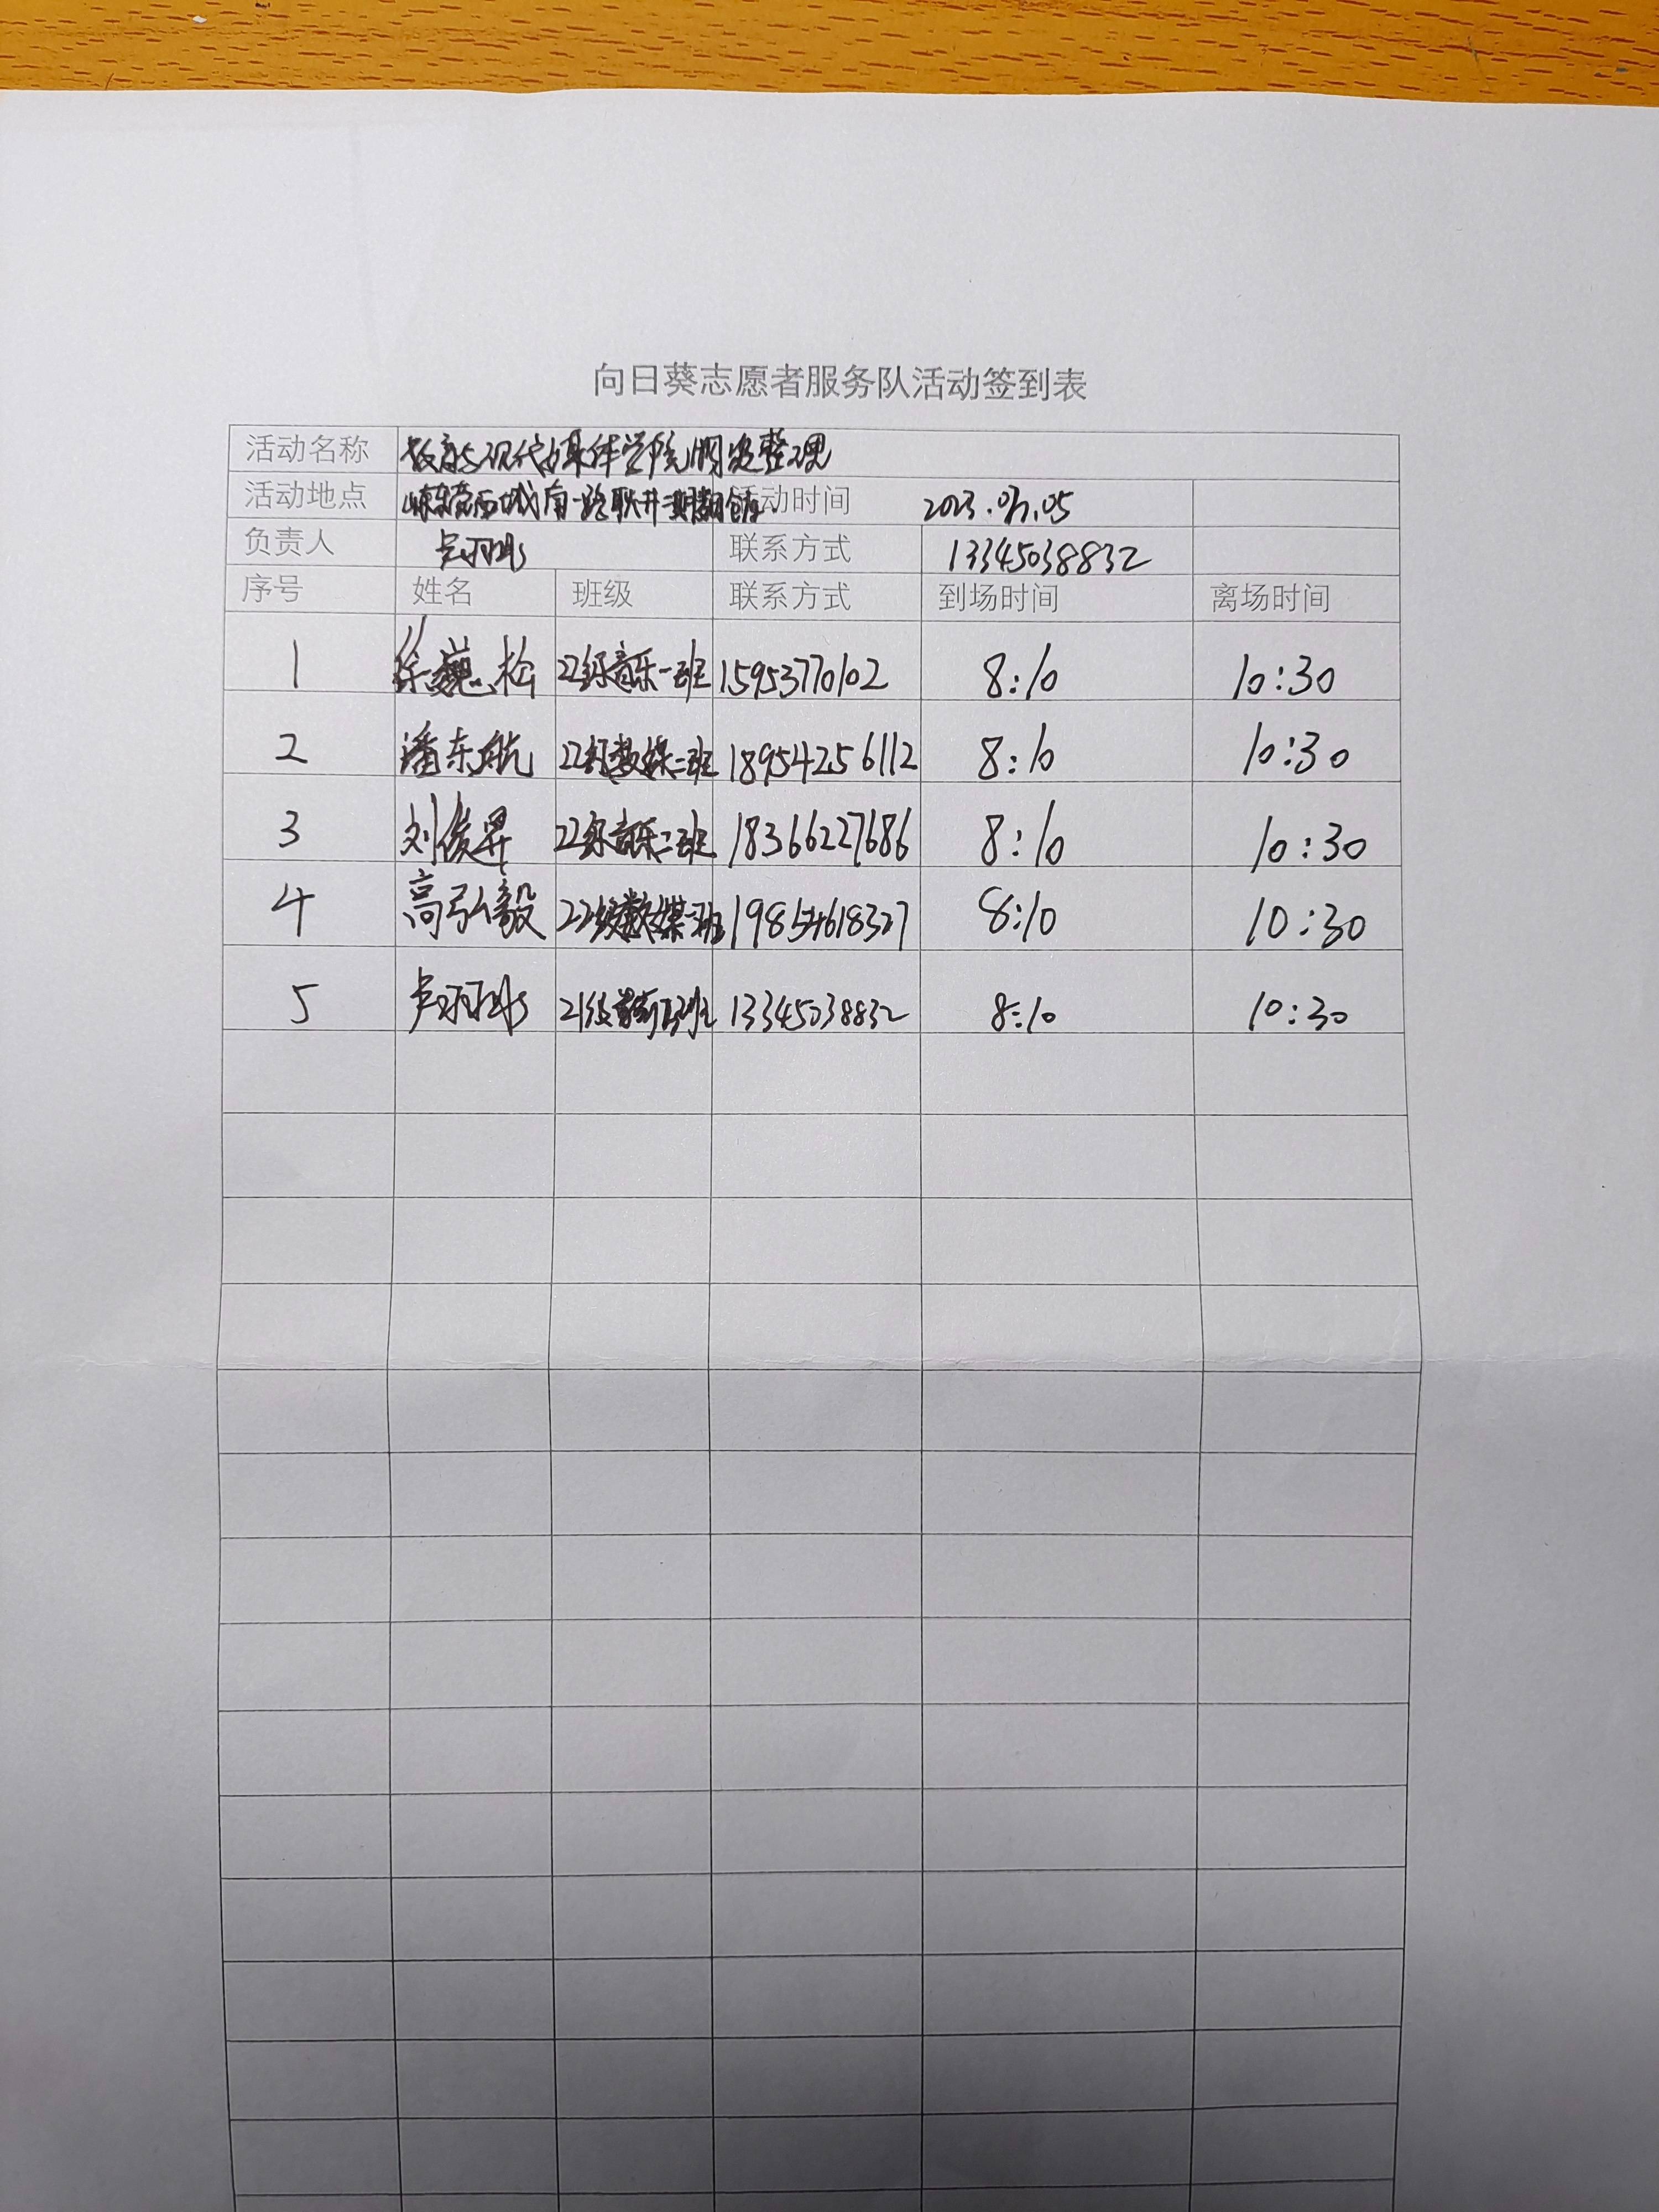 向日葵志愿者服务队活动签到表
活动名称 教育与现代媒体学院 整理
活动地点 活动时间 2023.07.05
负责人 联系方式 13345038832
序号 姓名 班级 联系方式 到场时间 离场时间
1 徐巍松 22级音乐一班 15953770102 8:10 10:30
2 潘东航 22级数媒二班 18954256112 8:10 10:30
3 刘俊昇 22级音乐二班 18366227686 8:10 10:30
4 高弘毅 22级数媒一班 8:10 10:30
5 21级 13345038832 8:10 10:30